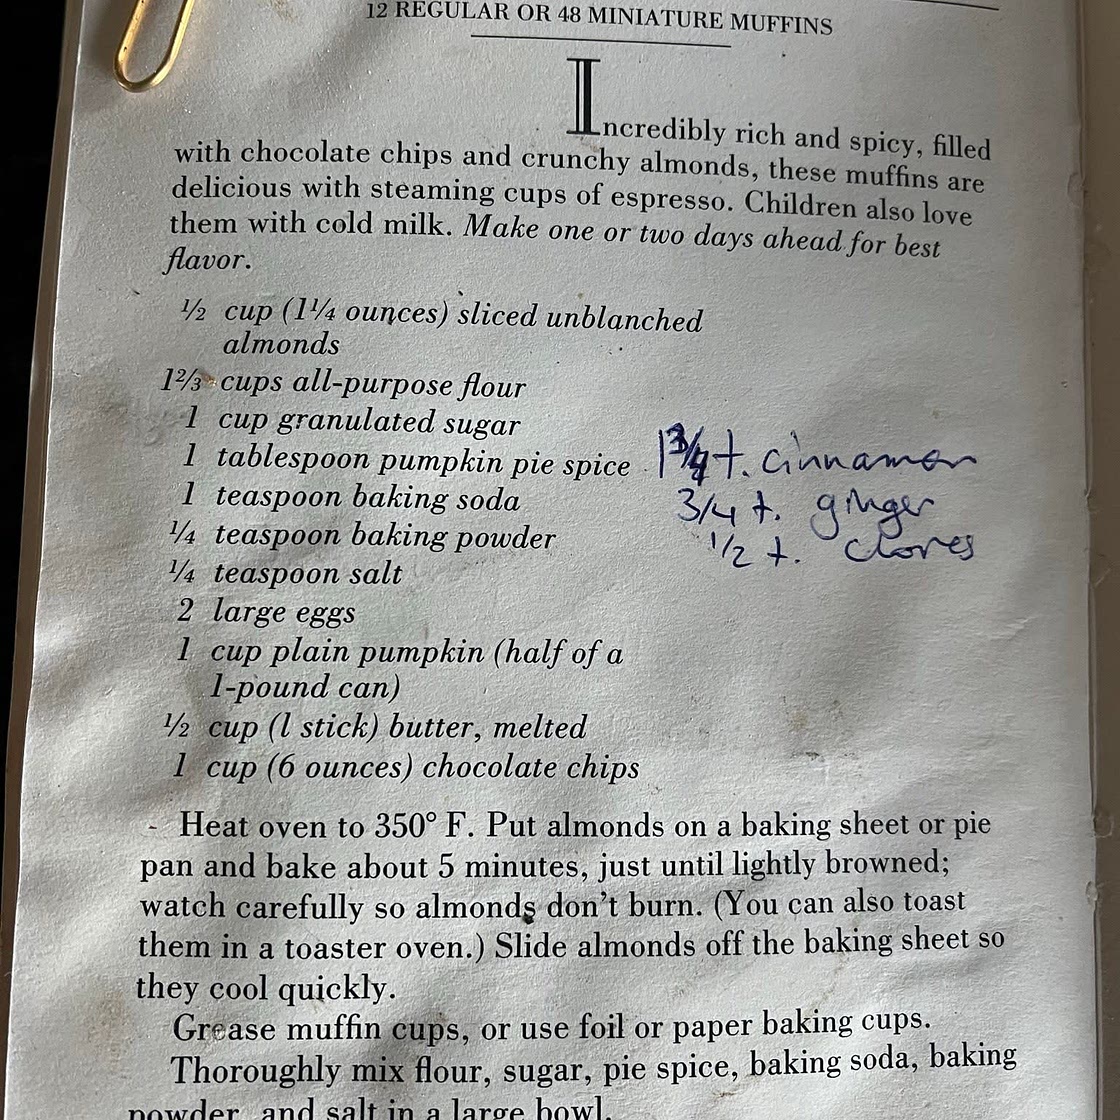 12 REGULAR OR 48 MINIATURE MUFFINS
Incredibly rich and spicy, filled
with chocolate chips and crunchy almonds, these muffins are
delicious with steaming cups of espresso. Children also love
them with cold milk. Make one or two days ahead for best
flavor.
½ cup (1¼ ounces) sliced unblanched
almonds
1⅔ cups all-purpose flour
1 cup granulated sugar
1 tablespoon pumpkin pie spice 1 3/4 t. cinnamon
1 teaspoon baking soda 3/4 t. ginger
¼ teaspoon baking powder 1/2 t. cloves
¼ teaspoon salt
2 large eggs
1 cup plain pumpkin (half of a
1-pound can)
½ cup (1 stick) butter, melted
1 cup (6 ounces) chocolate chips
Heat oven to 350° F. Put almonds on a baking sheet or pie
pan and bake about 5 minutes, just until lightly browned;
watch carefully so almonds don't burn. (You can also toast
them in a toaster oven.) Slide almonds off the baking sheet so
they cool quickly.
Grease muffin cups, or use foil or paper baking cups.
Thoroughly mix flour, sugar, pie spice, baking soda, baking
powder, and salt in a large bowl.